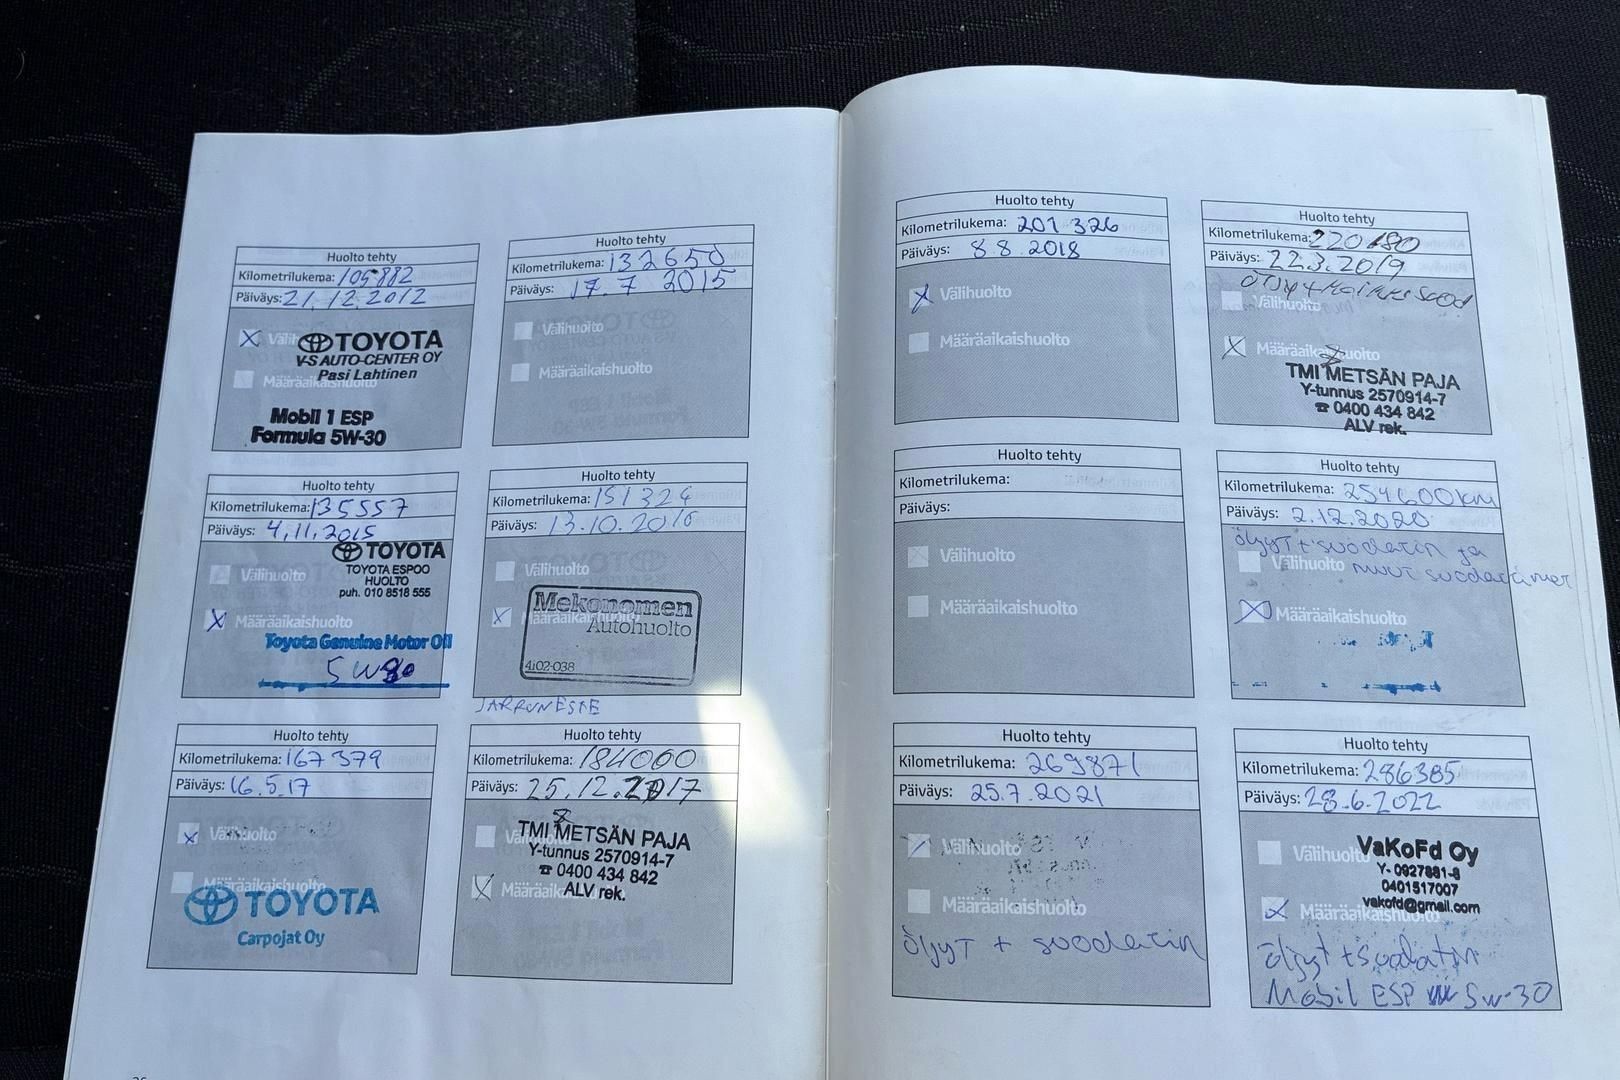 Huolto tehty
Kilometrilukema: 105882
Päiväys: 21.12.2012
Välihuolto
TOYOTA
V-S AUTO-CENTER OY
Pasi Lahtinen
Määräaikaishuolto
Mobil 1 ESP
Formula 5W-30
Huolto tehty
Kilometrilukema: 132650
Päiväys: 17.7 2015
Välihuolto
Määräaikaishuolto
Huolto tehty
Kilometrilukema: 135557
Päiväys: 4.11.2015
TOYOTA
TOYOTA ESPOO
HUOLTO
puh. 010 8518 555
Välihuolto
Määräaikaishuolto
Toyota Genuine Motor Oil
5W30
Huolto tehty
Kilometrilukema: 151324
Päiväys: 13.10.2016
Välihuolto
Määräaikaishuolto
Mekonomen
Autohuolto
4102-038
JARRUNESTE
Huolto tehty
Kilometrilukema: 167379
Päiväys: 16.5.17
Välihuolto
Määräaikaishuolto
TOYOTA
Carpojat Oy
Huolto tehty
Kilometrilukema: 184000
Päiväys: 25.12.2017
Välihuolto
TMI METSÄN PAJA
Y-tunnus 2570914-7
☎ 0400 434 842
ALV rek.
Määräaikaishuolto
Huolto tehty
Kilometrilukema: 201326
Päiväys: 8.8.2018
Välihuolto
Määräaikaishuolto
Huolto tehty
Kilometrilukema: 220180
Päiväys: 22.3.2019
Välihuolto
Määräaikaishuolto
TMI METSÄN PAJA
Y-tunnus 2570914-7
☎ 0400 434 842
ALV rek.
Huolto tehty
Kilometrilukema:
Päiväys:
Välihuolto
Määräaikaishuolto
Huolto tehty
Kilometrilukema: 254600km
Päiväys: 2.12.2020
öljyt + suodatin ja
Välihuolto muut suodattimet
Määräaikaishuolto
Huolto tehty
Kilometrilukema: 269871
Päiväys: 25.7.2021
Välihuolto
Määräaikaishuolto
öljyt + suodatin
Huolto tehty
Kilometrilukema: 286385
Päiväys: 28.6.2022
Välihuolto
VaKoFd Oy
Y-0927881-8
0401517007
vakofd@gmail.com
Määräaikaishuolto
öljyt + suodatin
Mobil ESP 5w-30